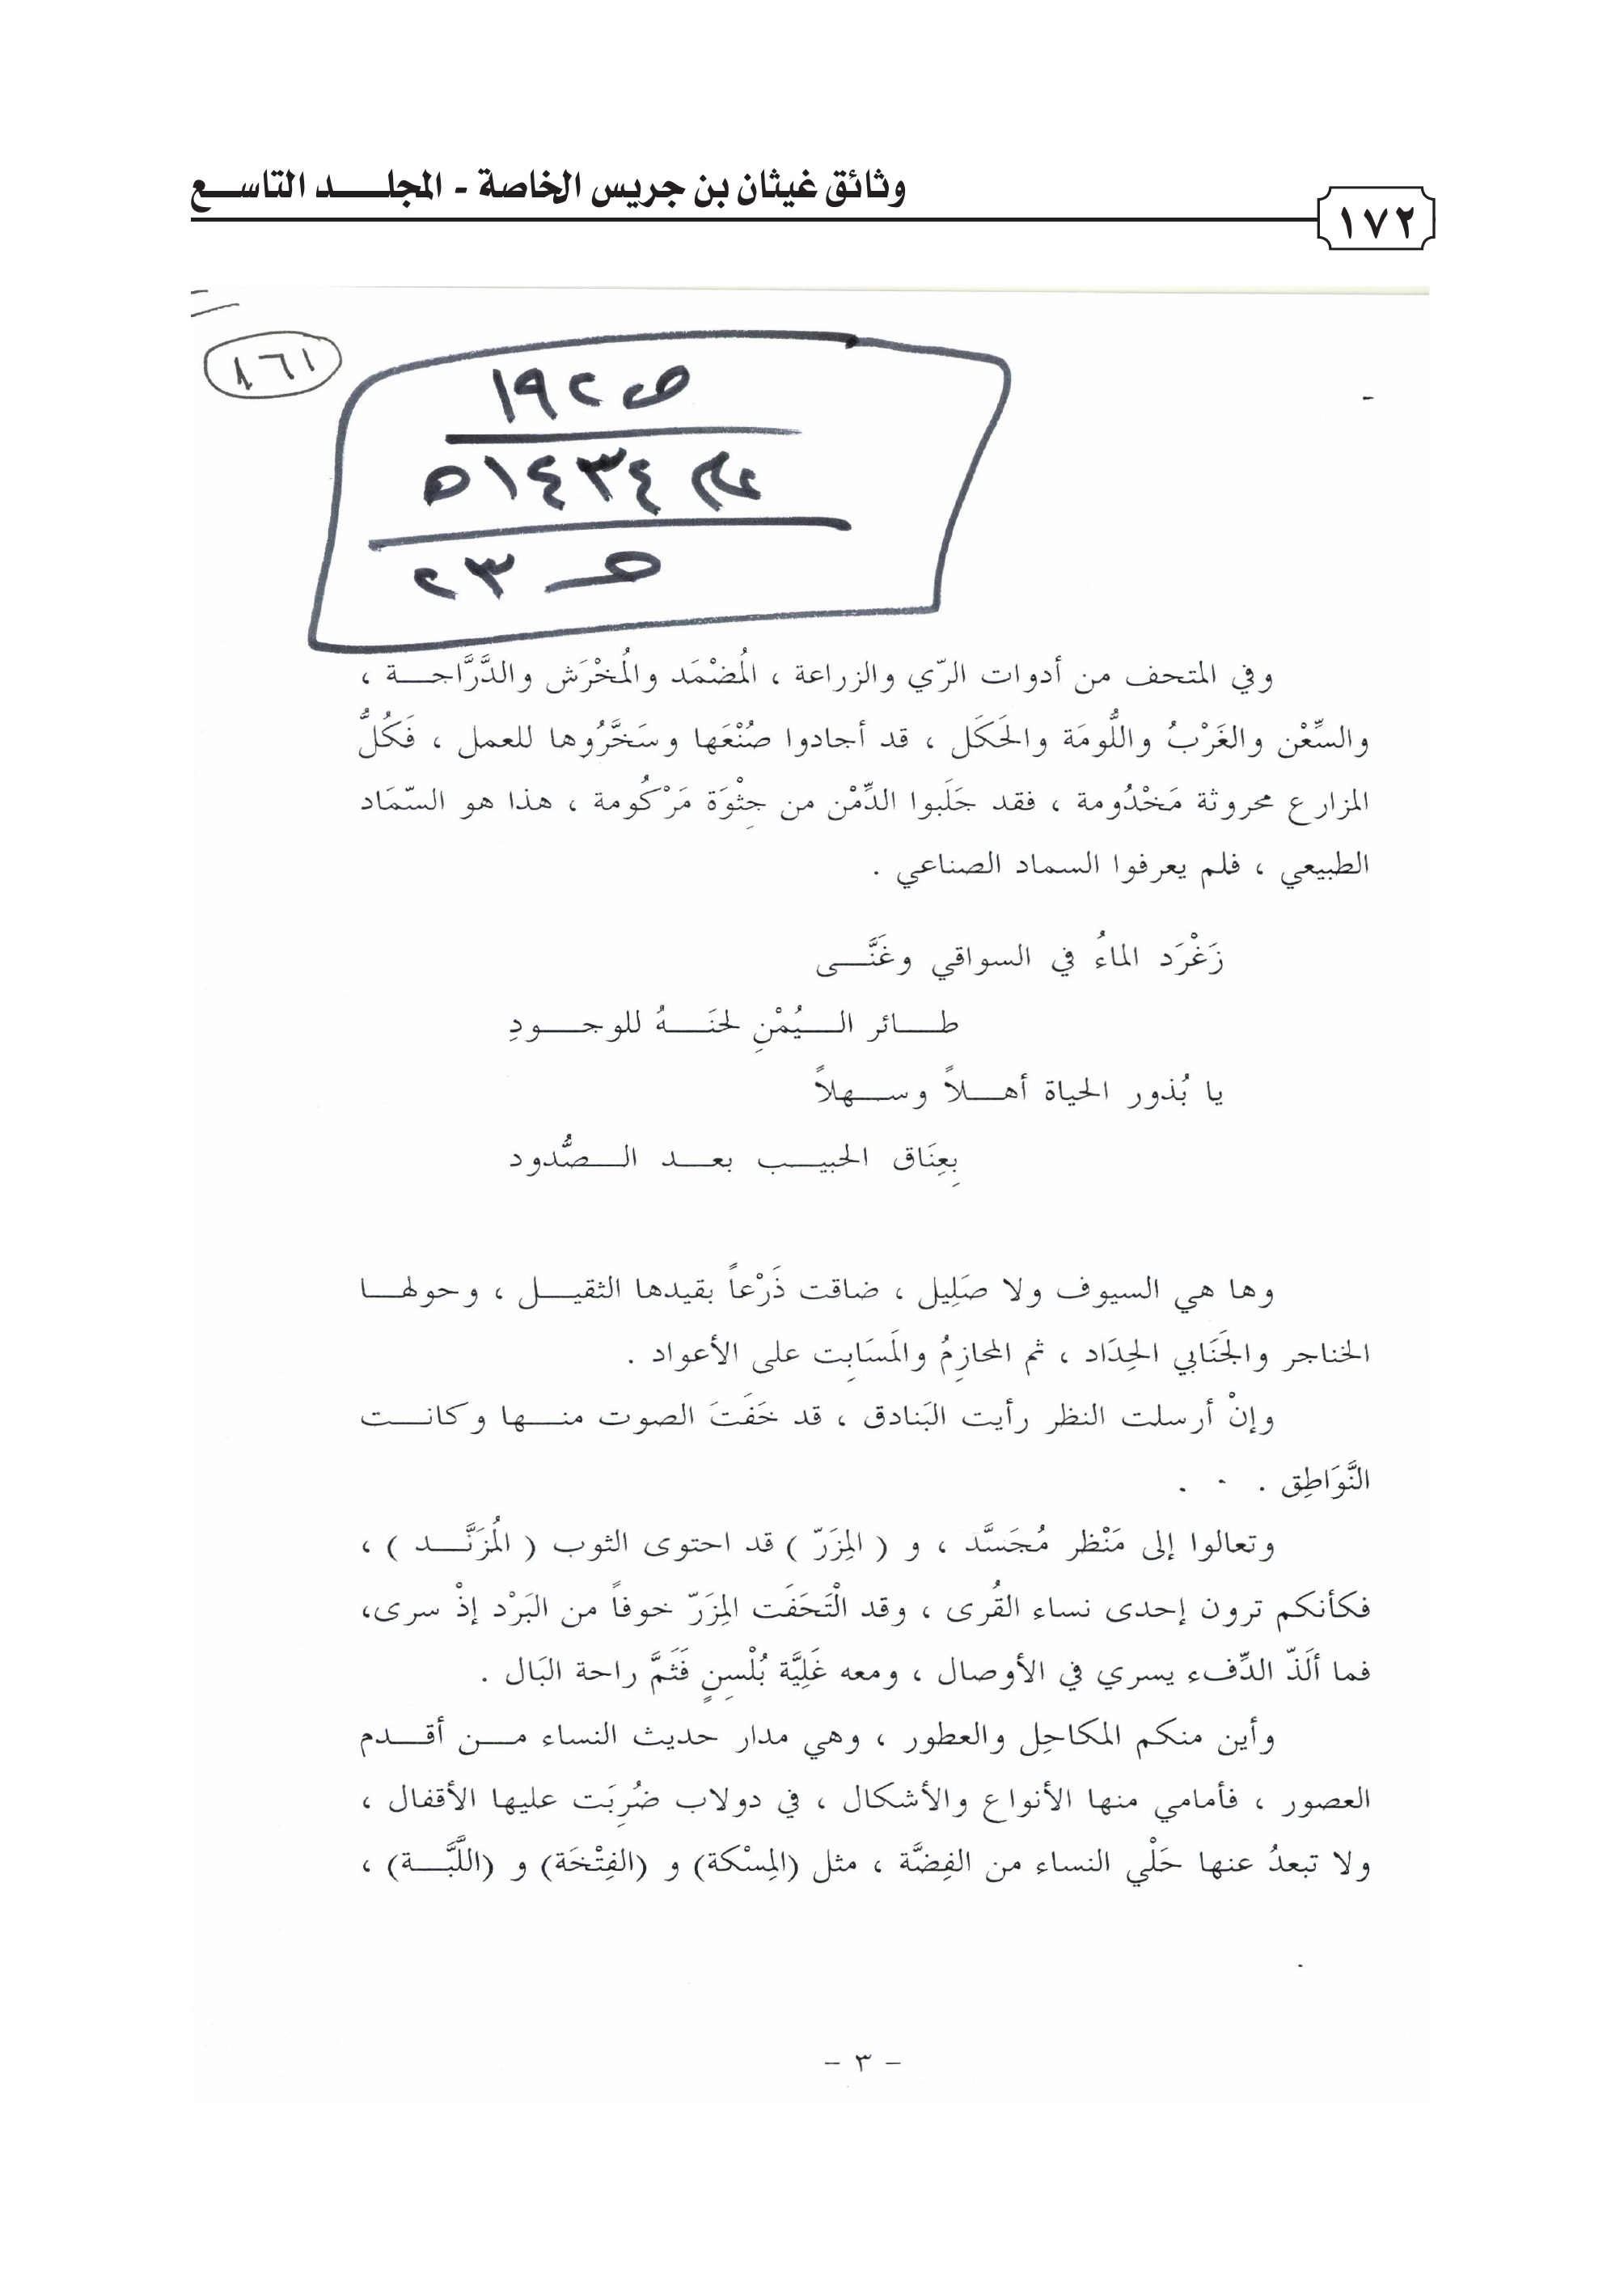 وثائق غيثان بن جريس الخاصة - المجلد التاسع
١٧٢
١٦٨
ص ١٩٢
عام ١٤٣٤هـ
صـ ٢٣
وفي المتحف من أدوات الرّي والزراعة ، المُضْمَد والمُخْرَش والدَّرَّاجة ،
والسِّعْن والغَرْبُ واللُّومَة والحَكَل ، قد أجادوا صُنْعَها وسَخَّرُوها للعمل ، فَكُلُّ
المزارع محروثة مَخْدُومة ، فقد جَلَبوا الدِّمْن من جِثْوَة مَرْكُومة ، هذا هو السّمَاد
الطبيعي ، فلم يعرفوا السماد الصناعي .
زَغْرَد الماءُ في السواقي وغَنَّى
طائر اليُمْنِ لحنَهُ للوجودِ
يا بُذور الحياة أهلاً وسهلاً
بِعِنَاق الحبيب بعد الصُّدود
وها هي السيوف ولا صَلِيل ، ضاقت ذَرْعاً بقيدها الثقيل ، وحولها
الخناجر والجَنَابي الحِدَاد ، ثم المحازِمُ والمَسَابِت على الأعواد .
وإنْ أرسلت النظر رأيت البَنادق ، قد خَفَتَ الصوت منها وكانت
النَّوَاطِق .
وتعالوا إلى مَنْظر مُجَسَّد ، و ( المِزَرّ ) قد احتوى الثوب ( المُزَنَّد ) ،
فكأنكم ترون إحدى نساء القُرى ، وقد الْتَحَفَت المِزَرّ خوفاً من البَرْد إذْ سرى،
فما ألَذّ الدِّفء يسري في الأوصال ، ومعه غَلِيَّة بُلْسِنٍ فَثَمَّ راحة البَال .
وأين منكم المكاحِل والعطور ، وهي مدار حديث النساء من أقدم
العصور ، فأمامي منها الأنواع والأشكال ، في دولاب ضُرِبَت عليها الأقفال ،
ولا تبعدُ عنها حَلْي النساء من الفِضَّة ، مثل (المِسْكة) و (الفِتْخَة) و (اللَّبَّة) ،
- ٣ -